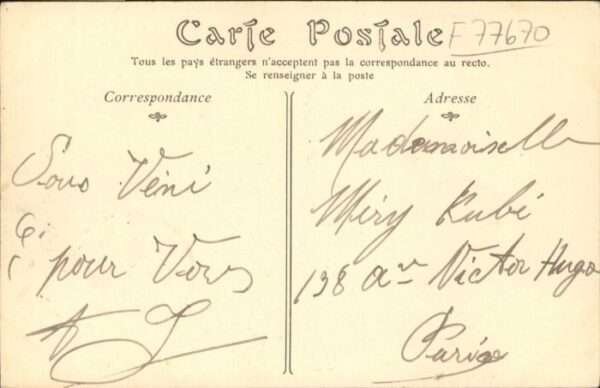 Carte Postale
F 77670
Tous les pays étrangers n'acceptent pas la correspondance au recto.
Se renseigner à la poste
Correspondance
Sous Véni
pour Vous
Adresse
Mademoiselle
Méry Kubé
138 Avue Victor Hugo
Paris